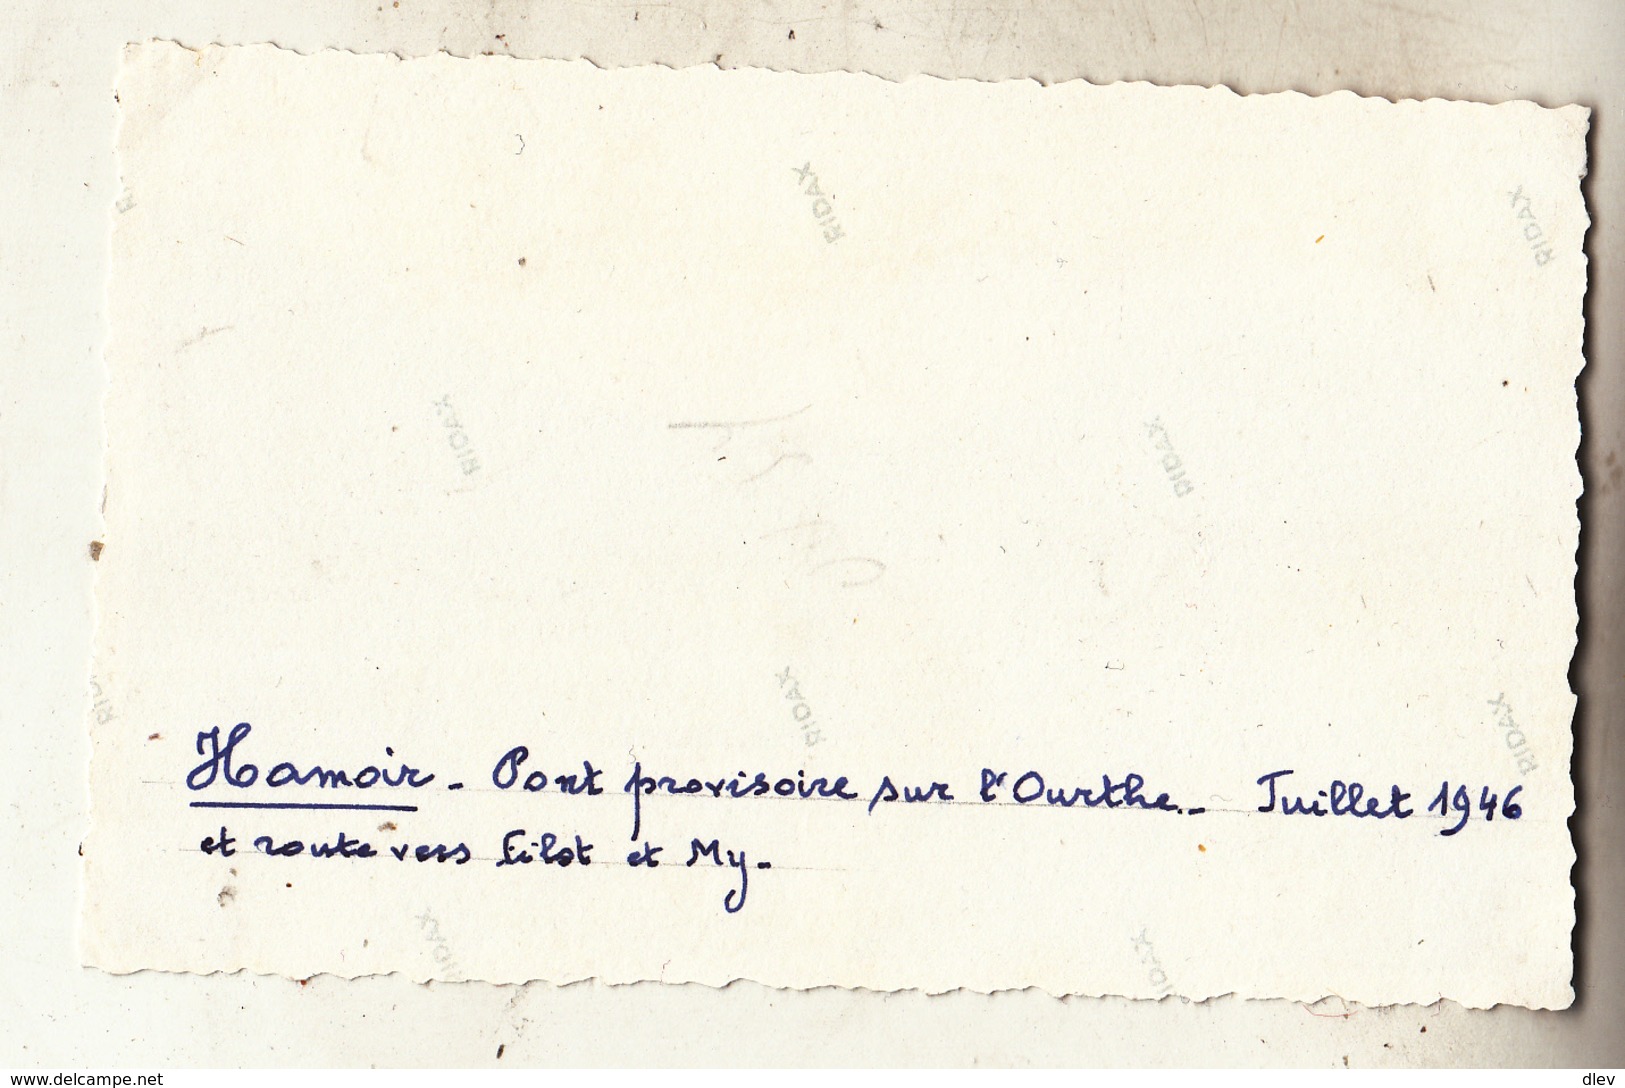 RIDAX
RIDAX
RIDAX
RIDAX
RIDAX
RIDAX
Hamoir - Pont provisoire sur l'Ourthe.- Juillet 1946
et route vers Filot et My-
RIDAX
RIDAX
www.delcampe.net
dlev